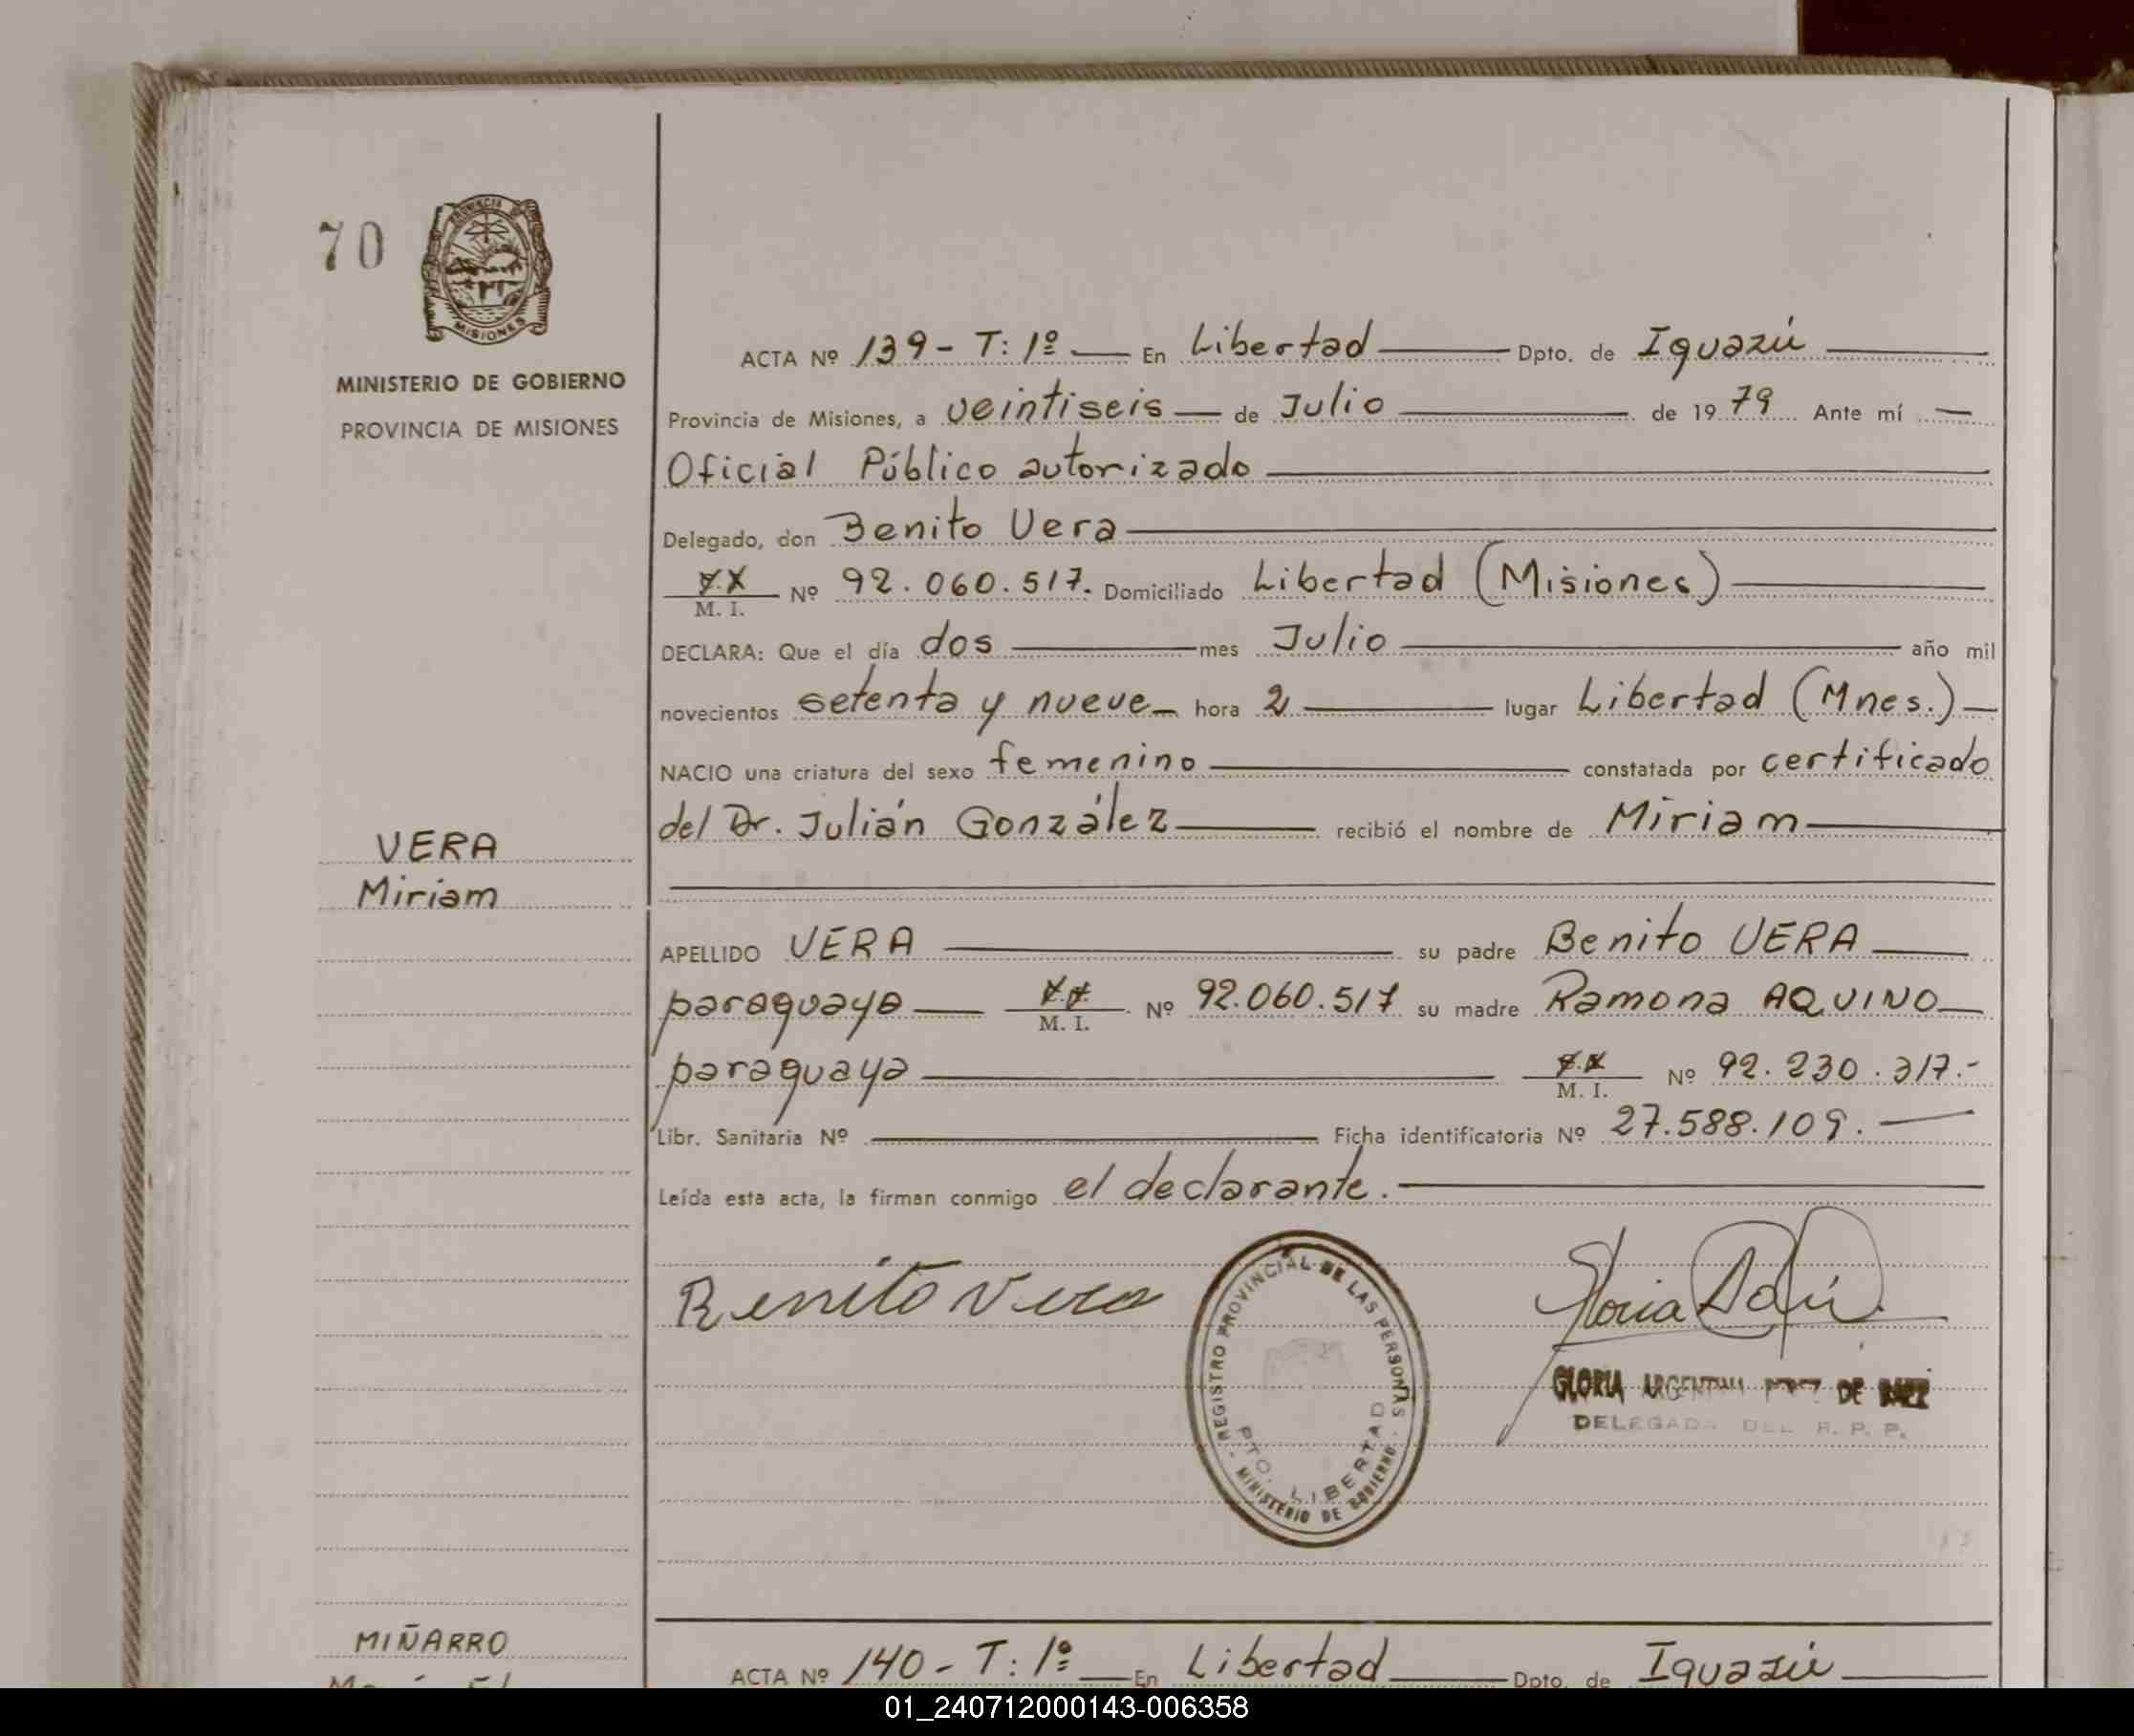 70
PROVINCIA DE
MISIONES
MINISTERIO DE GOBIERNO
PROVINCIA DE MISIONES
ACTA Nº 139 - T: 1º — En Libertad — Dpto. de Iguazú —
Provincia de Misiones, a veintiseis — de Julio — de 1979 Ante mí —
Oficial Público autorizado —
Delegado, don Benito Vera —
M. I. Nº 92.060.517. Domiciliado Libertad (Misiones) —
DECLARA: Que el día dos — mes Julio — año mil
novecientos setenta y nueve — hora 2 — lugar Libertad (Mnes.) —
NACIO una criatura del sexo femenino — constatada por certificado
del Dr. Julián González — recibió el nombre de Miriam —
VERA
Miriam
APELLIDO VERA — su padre Benito VERA —
paraguayo — M. I. Nº 92.060.517 su madre Ramona AQUINO —
paraguaya — M. I. Nº 92.230.317.-
Libr. Sanitaria Nº — Ficha identificatoria Nº 27.588.109. —
Leída esta acta, la firman conmigo el declarante. —
Benito Vera
REGISTRO PROVINCIAL DE LAS PERSONAS
PTO. LIBERTAD
MINISTERIO DE GOBIERNO
Gloria
GLORIA ARGENTINA DE BAEZ
DELEGADA DEL R. P. P.
MIÑARRO
ACTA Nº 140 - T: 1º — En Libertad — Dpto. de Iguazú —
01_240712000143-006358